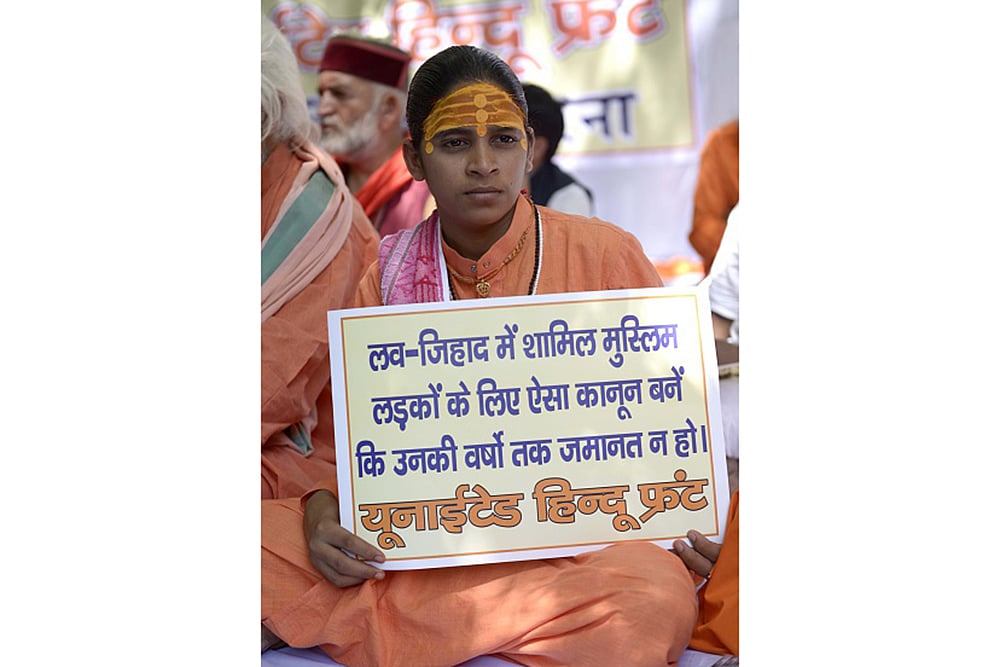 यूनाईटेड हिन्दू फ्रंट
लव-जिहाद में शामिल मुस्लिम
लड़कों के लिए ऐसा कानून बनें
कि उनकी वर्षो तक जमानत न हो।
यूनाईटेड हिन्दू फ्रंट